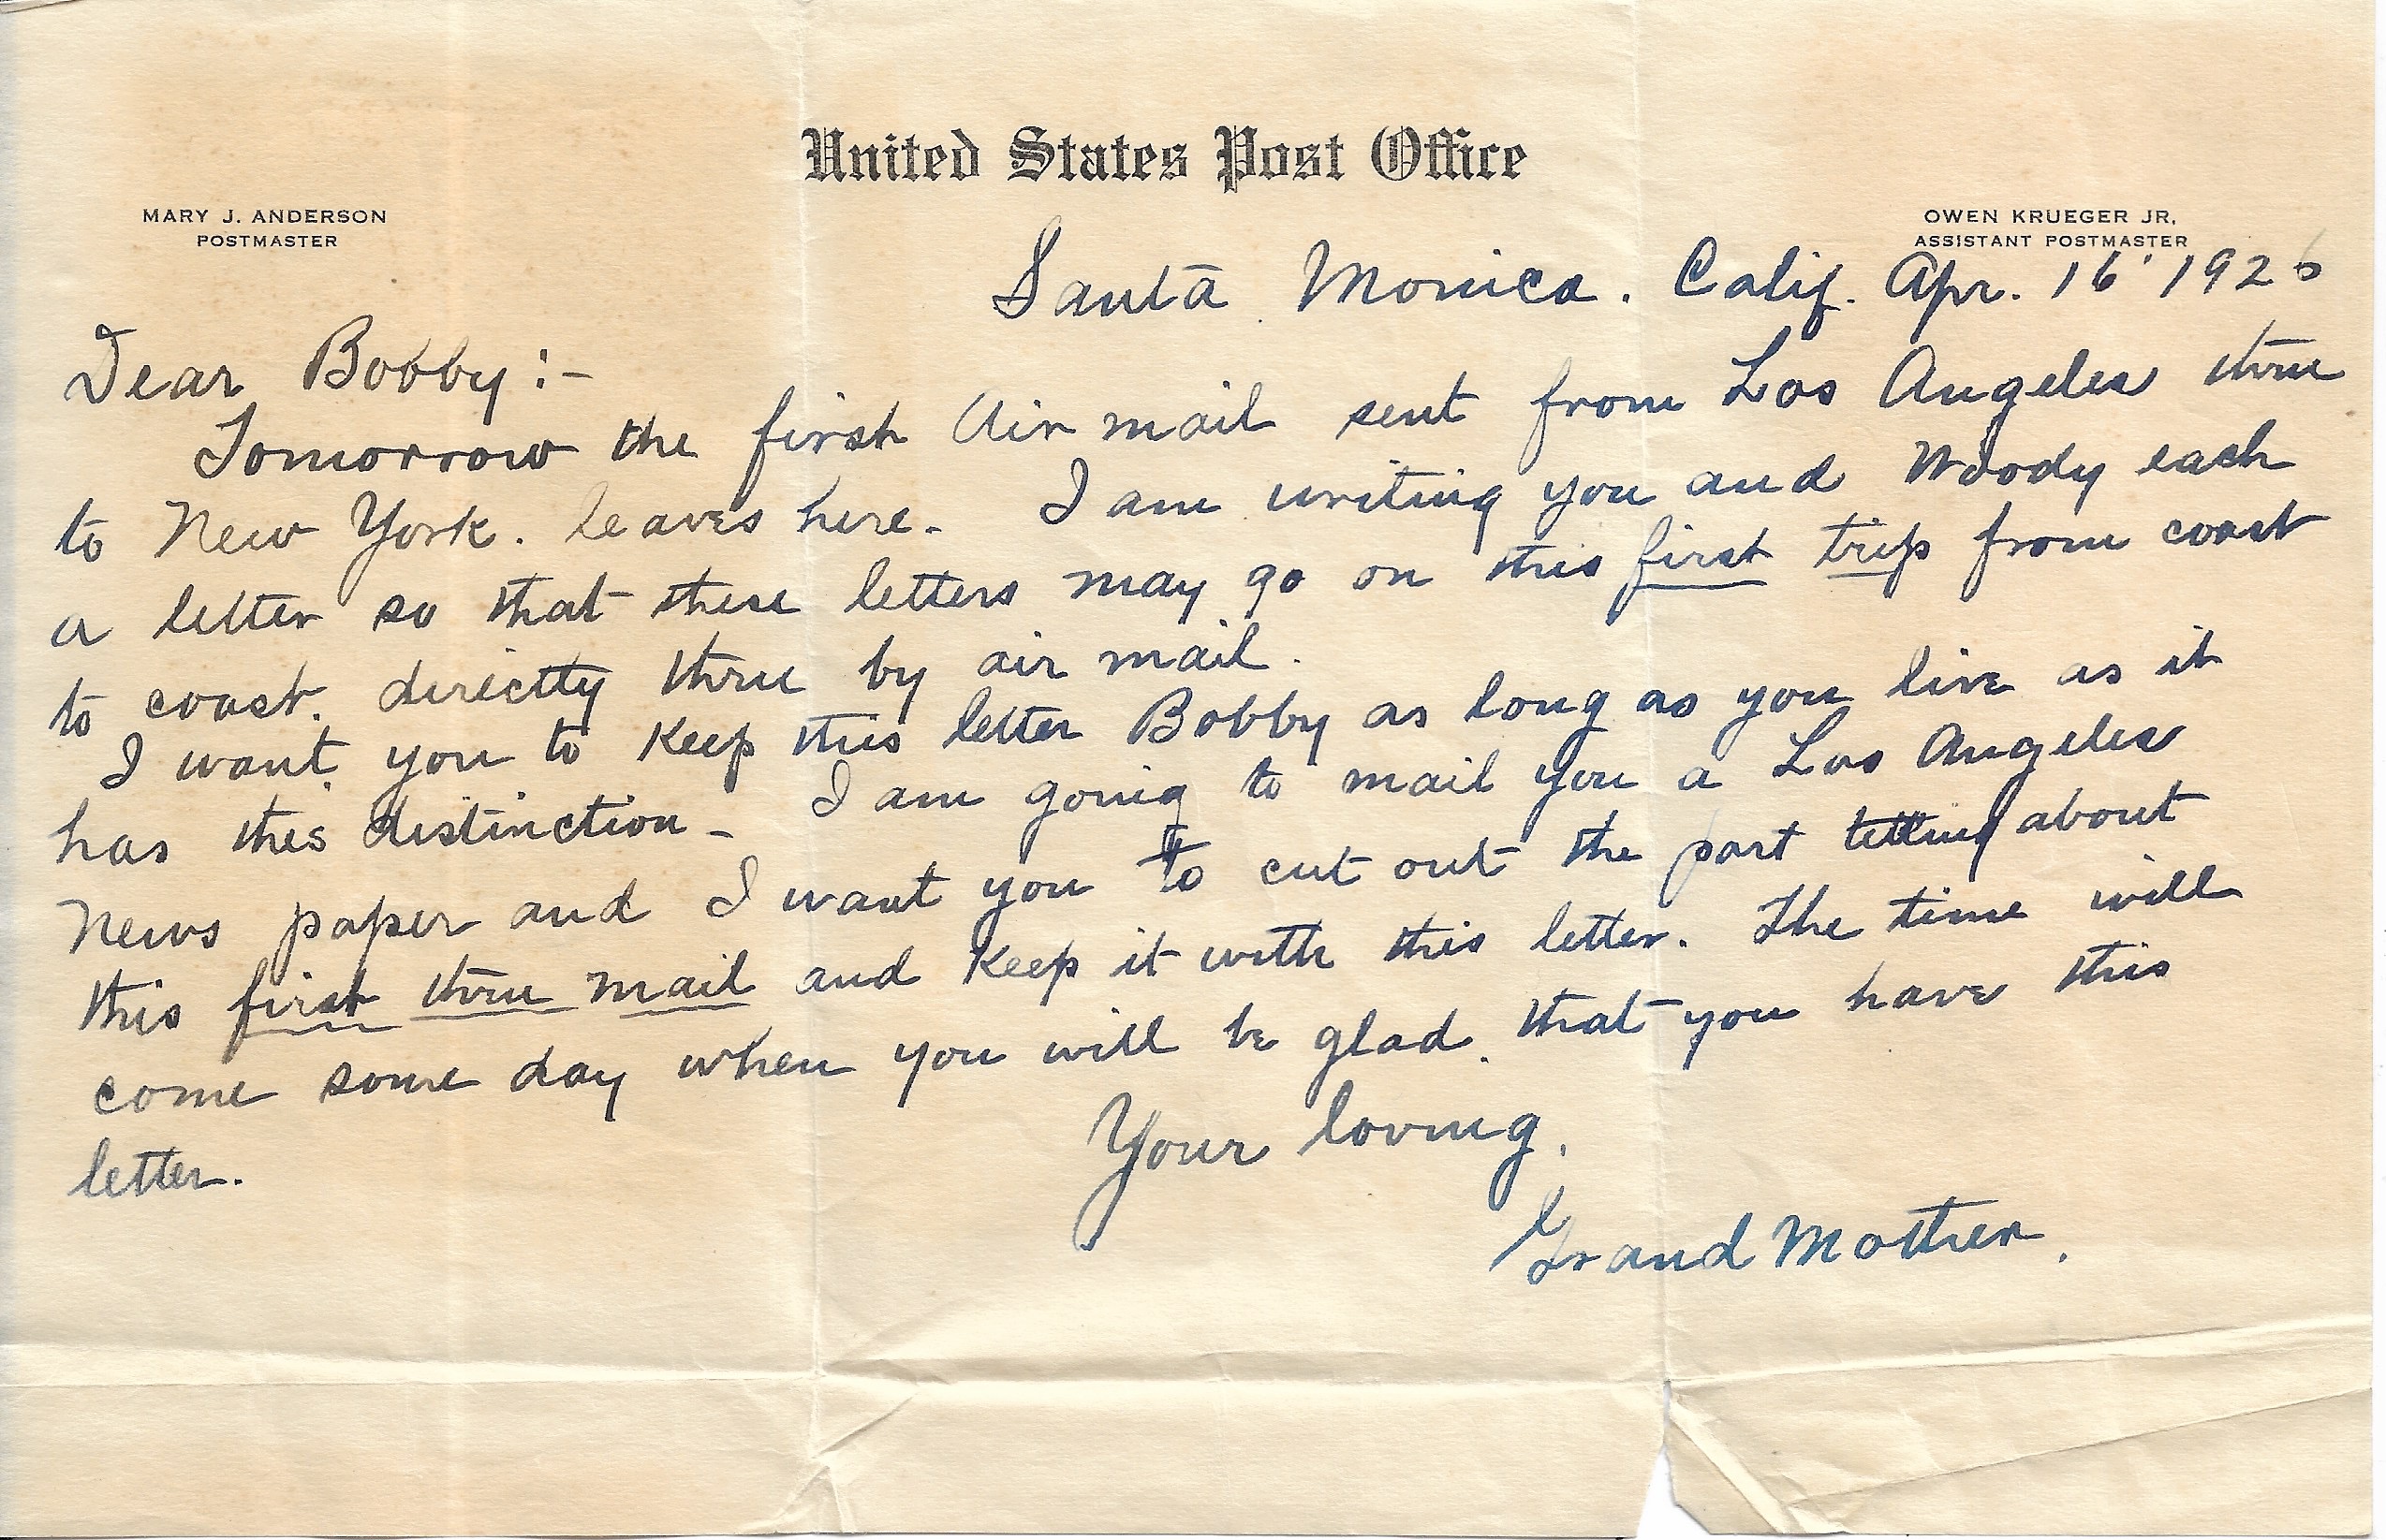 United States Post Office
MARY J. ANDERSON
POSTMASTER
OWEN KRUEGER JR,
ASSISTANT POSTMASTER
Santa Monica. Calif. Apr. 16' 1926
Dear Bobby:-
Tomorrow the first Air mail sent from Los Angeles thru
to New York. leaves here- I am writing you and Woody each
a letter so that these letters may go on this first trip from coast
to coast. directly thru by air mail.
I want you to keep this letter Bobby as long as you live as it
has this distinction- I am going to mail you a Los Angeles
News paper and I want you to cut out the part telling about
this first thru mail and keep it with this letter. The time will
come some day when you will be glad that you have this
letter.
Your loving,
Grand Mother.